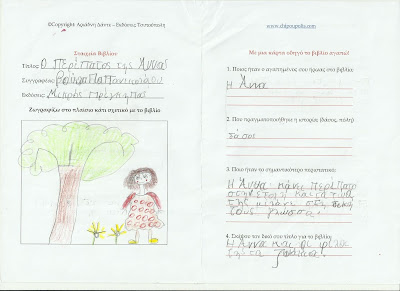 ©Copyright Αριάδνη Δάντε - Εκδόσεις Τσουπούπολη
Στοιχεία Βιβλίου
Τίτλος: Ο Περίπατος της Άννας
Συγγραφέας:
Εκδόσεις: Μικρός Πρίγκηπας
Ζωγραφίζω στο πλαίσιο κάτι σχετικό με το βιβλίο
www.chipoupolis.com
Με μια κάρτα οδηγό το βιβλίο αγαπώ!
1. Ποιος ήταν ο αγαπημένος σου ήρωας στο βιβλίο;
Η Άννα
2. Πού πραγματοποιήθηκε η ιστορία (δάσος, πόλη)
δάσος
3. Ποιο ήταν το σημαντικότερο περιστατικό;
Η Άννα κάνει περίπατο
στην
τους γλώσσα.
4. Σκέψου τον δικό σου τίτλο για το βιβλίο;
Η Άννα και οι φίλοι
της τα